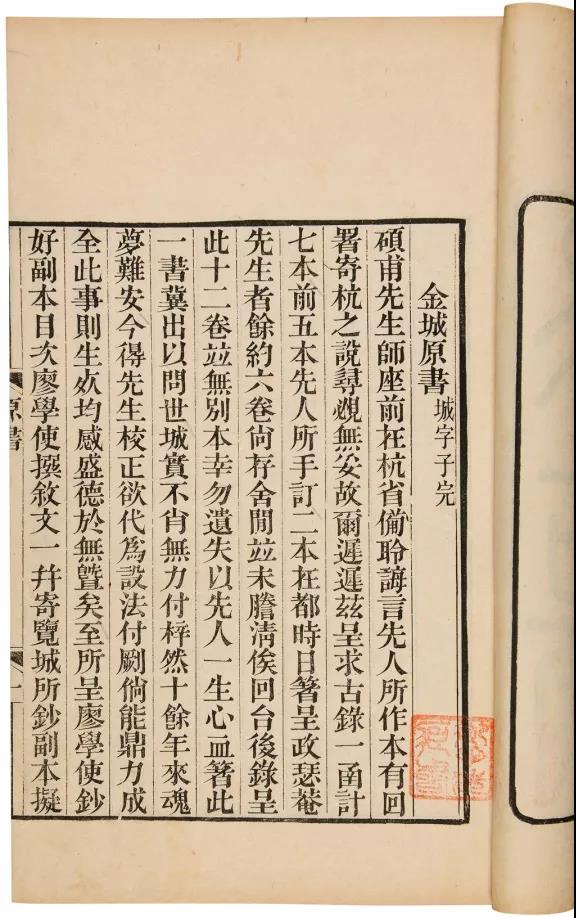 金城原書 城字子完
碩甫先生師座前扗杭省僃聆誨言先人所作本有回
署寄杭之說尋覓無妥故爾遲遲茲呈求古錄一函計
七本前五本先人所手訂二本扗都時日箸呈政瑟菴
先生者餘約六卷尙存舍閒並未謄淸俟回台後錄呈
此十二卷並無別本幸勿遺失以先人一生心血箸此
一書冀出以問世城實不肖無力付梓然十餘年來魂
夢難安今得先生校正欲代爲設法付劂倘能鼎力成
全此事則生歿均感盛德於無曁矣至所呈廖學使鈔
好副本目次廖學使撰敘文一幷寄覽城所鈔副本擬
原書
一